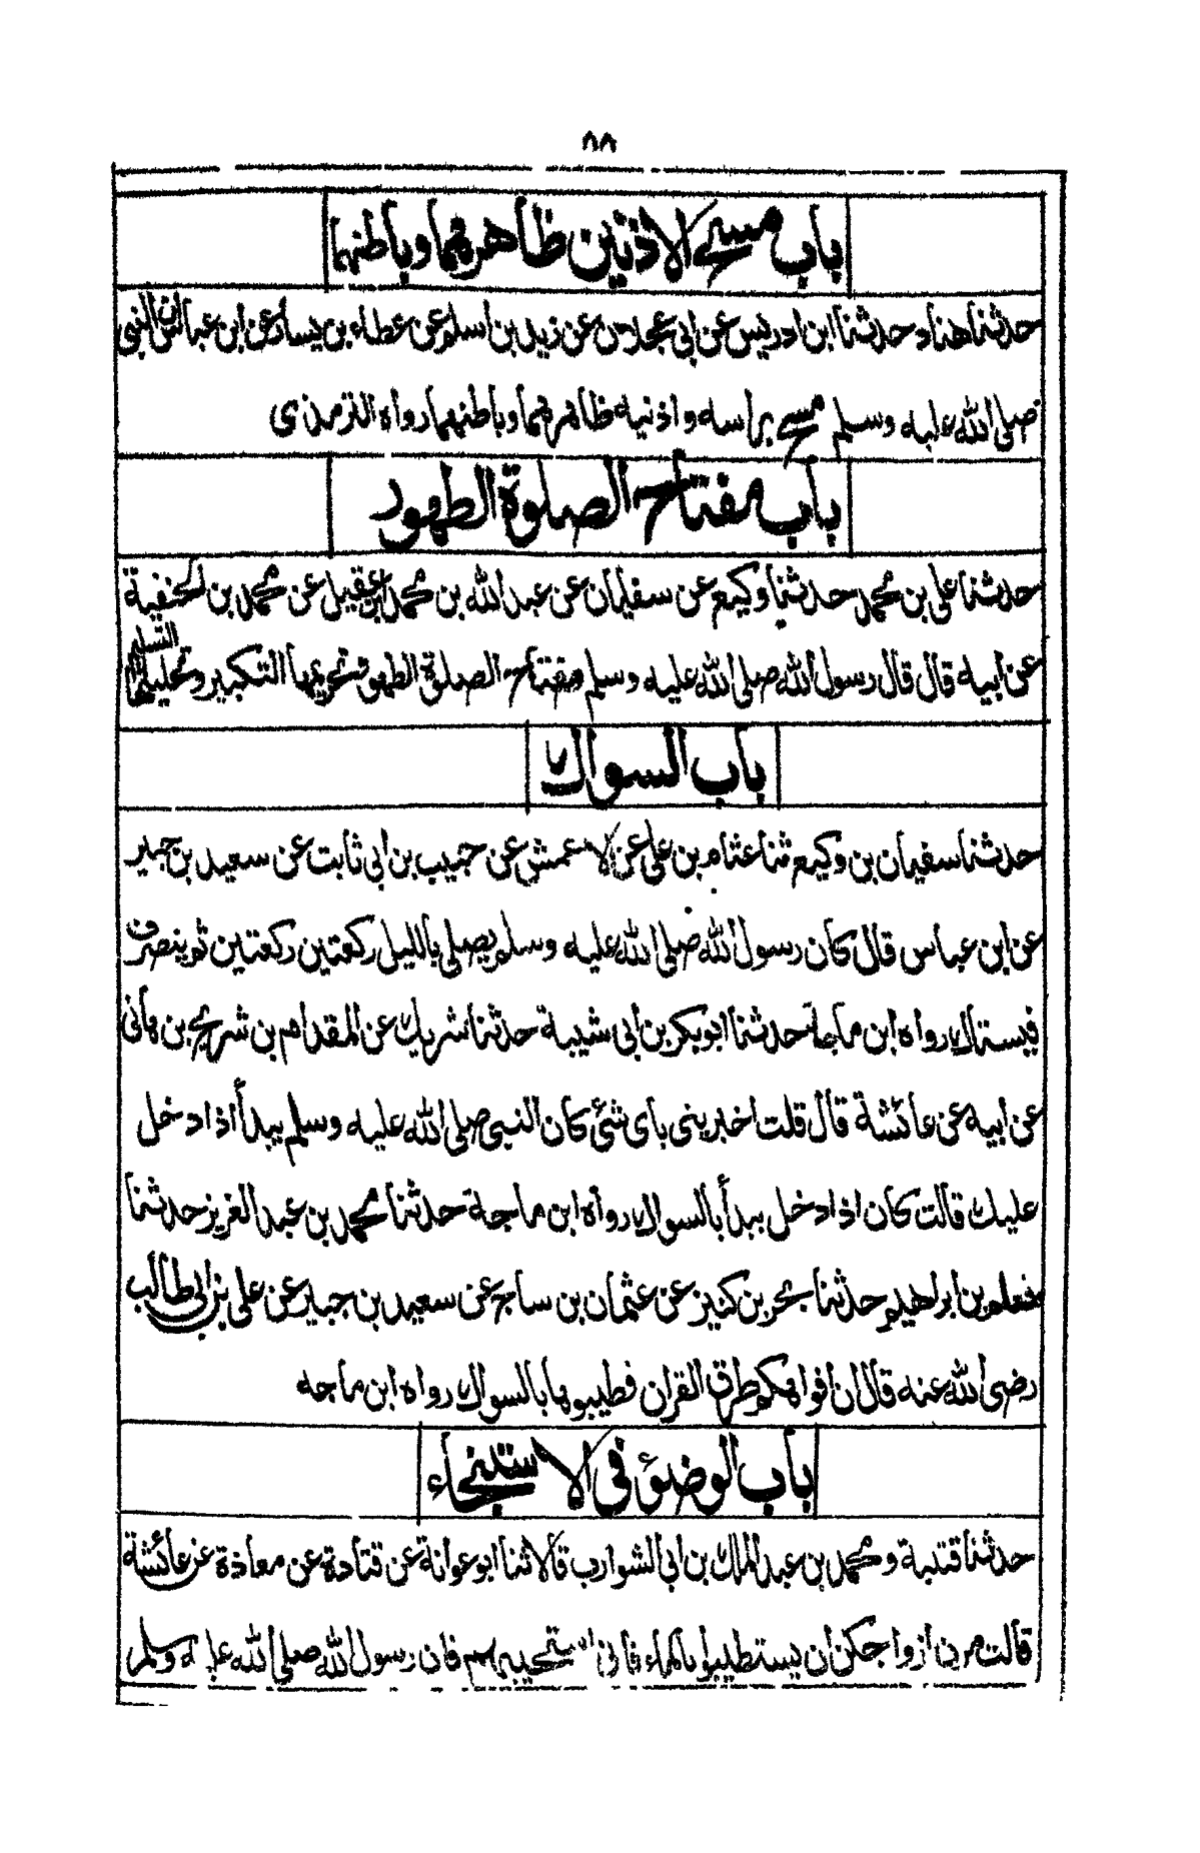 ٨٨
باب مسح الاذنين ظاهرهما وباطنهما
حدثنا هناد حدثنا ابن ادريس عن ابى عجلان عن زيد بن اسلم عن عطاء بن يسار عن ابن عباس ان النبى
صلى الله عليه وسلم مسح براسه واذنيه ظاهرهما وباطنهما رواه الترمذى
باب مفتاح الصلوة الطهور
حدثنا على بن محمد حدثنا وكيع عن سفيان عن عبد الله بن محمد بن عقيل عن محمد بن الحنفية
عن ابيه قال قال رسول الله صلى الله عليه وسلم مفتاح الصلوة الطهور وتحريمها التكبير وتحليلها التسليم
باب السواك
حدثنا سفيان بن وكيع ثنا عثام بن على عن الاعمش عن حبيب بن ابى ثابت عن سعيد بن جبير
عن ابن عباس قال كان رسول الله صلى الله عليه وسلم يصلى بالليل ركعتين ركعتين ثم ينصرف
فيستاك رواه ابن ماجة حدثنا ابو بكر بن ابى شيبة حدثنا شريك عن المقدام بن شريح بن هانى
عن ابيه عن عائشة قال قلت اخبرينى باى شئ كان النبى صلى الله عليه وسلم يبدأ اذا دخل
عليك قالت كان اذا دخل يبدأ بالسواك رواه ابن ماجة حدثنا محمد بن عبد العزيز حدثنا
مسلم بن ابراهيم حدثنا بحر بن كنيز عن عثمان بن ساج عن سعيد بن جبير عن على بن ابى طالب
رضى الله عنه قال ان افواهكم طرق القران فطيبوها بالسواك رواه ابن ماجه
باب الوضؤ فى الاستنجاء
حدثنا قتيبة ومحمد بن عبد الملك بن ابى الشوارب قالا ثنا ابو عوانة عن قتادة عن معاذة عن عائشة
قالت مرن ازواجكن ان يستطيبوا بالماء فانى استحييهم فان رسول الله صلى الله عليه وسلم